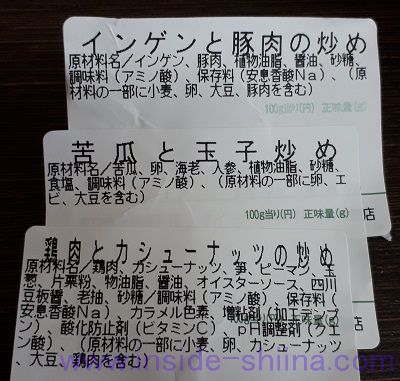 インゲンと豚肉の炒め
原材料名／インゲン、豚肉、植物油脂、醤油、砂糖、
調味料（アミノ酸）、保存料（安息香酸Ｎａ）、（原
材料の一部に小麦、卵、大豆、豚肉を含む）
100g当り(円) 正味量(g)
苦瓜と玉子炒め
原材料名／苦瓜、卵、海老、人参、植物油脂、砂糖、
食塩、調味料（アミノ酸）、（原材料の一部に卵、エ
ビ、大豆を含む）
100g当り(円) 正味量(g)
店
鶏肉とカシューナッツの炒め
原材料名／鶏肉、カシューナッツ、筍、ピーマン、玉
葱、片栗粉、物油脂、醤油、オイスターソース、四川
豆板醤、老抽、砂糖／調味料（アミノ酸）　保存料（
安息香酸Ｎａ）　カラメル色素、増粘剤（加工デンプ
ン）、酸化防止剤（ビタミンＣ）、ｐＨ調整剤（クエ
ン酸）、（原材料の一部に小麦、卵、カシューナッツ
、大豆、鶏肉を含む）
www.inside-shiina.com